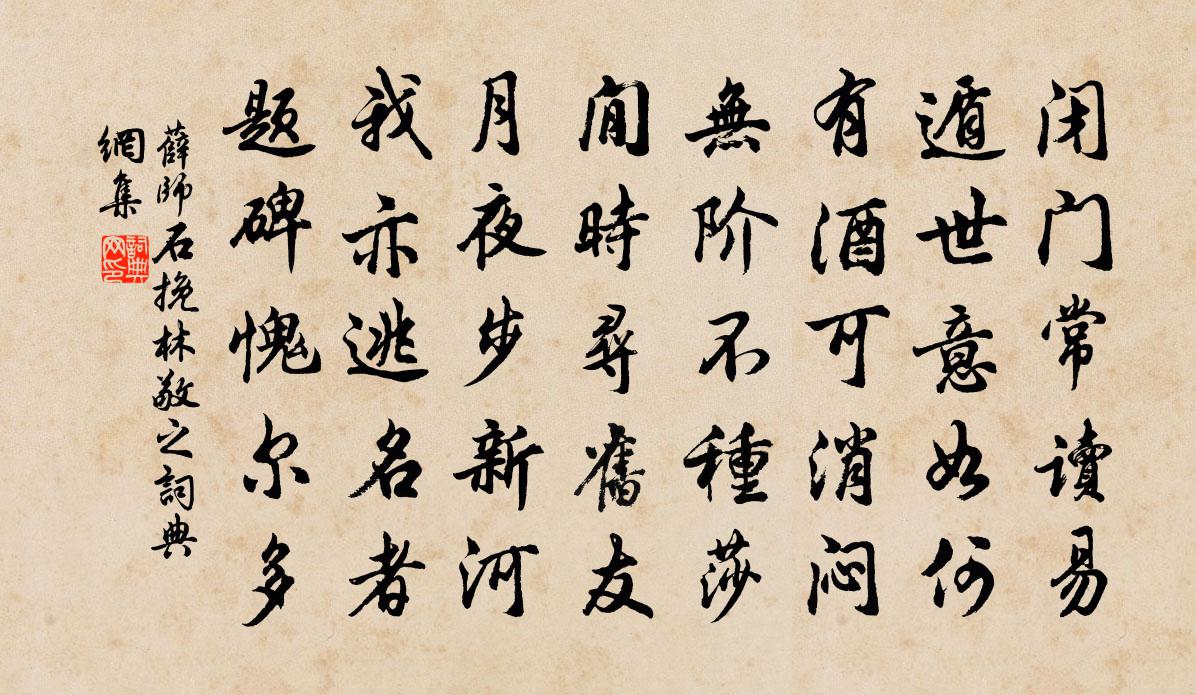 闭门常讀易
遁世意如何
有酒可消闷
無阶不種莎
閒時尋舊友
月夜步新河
我亦逃名者
题碑愧尔多
薛師石挽林敬之詞典
網集
詞典
网印